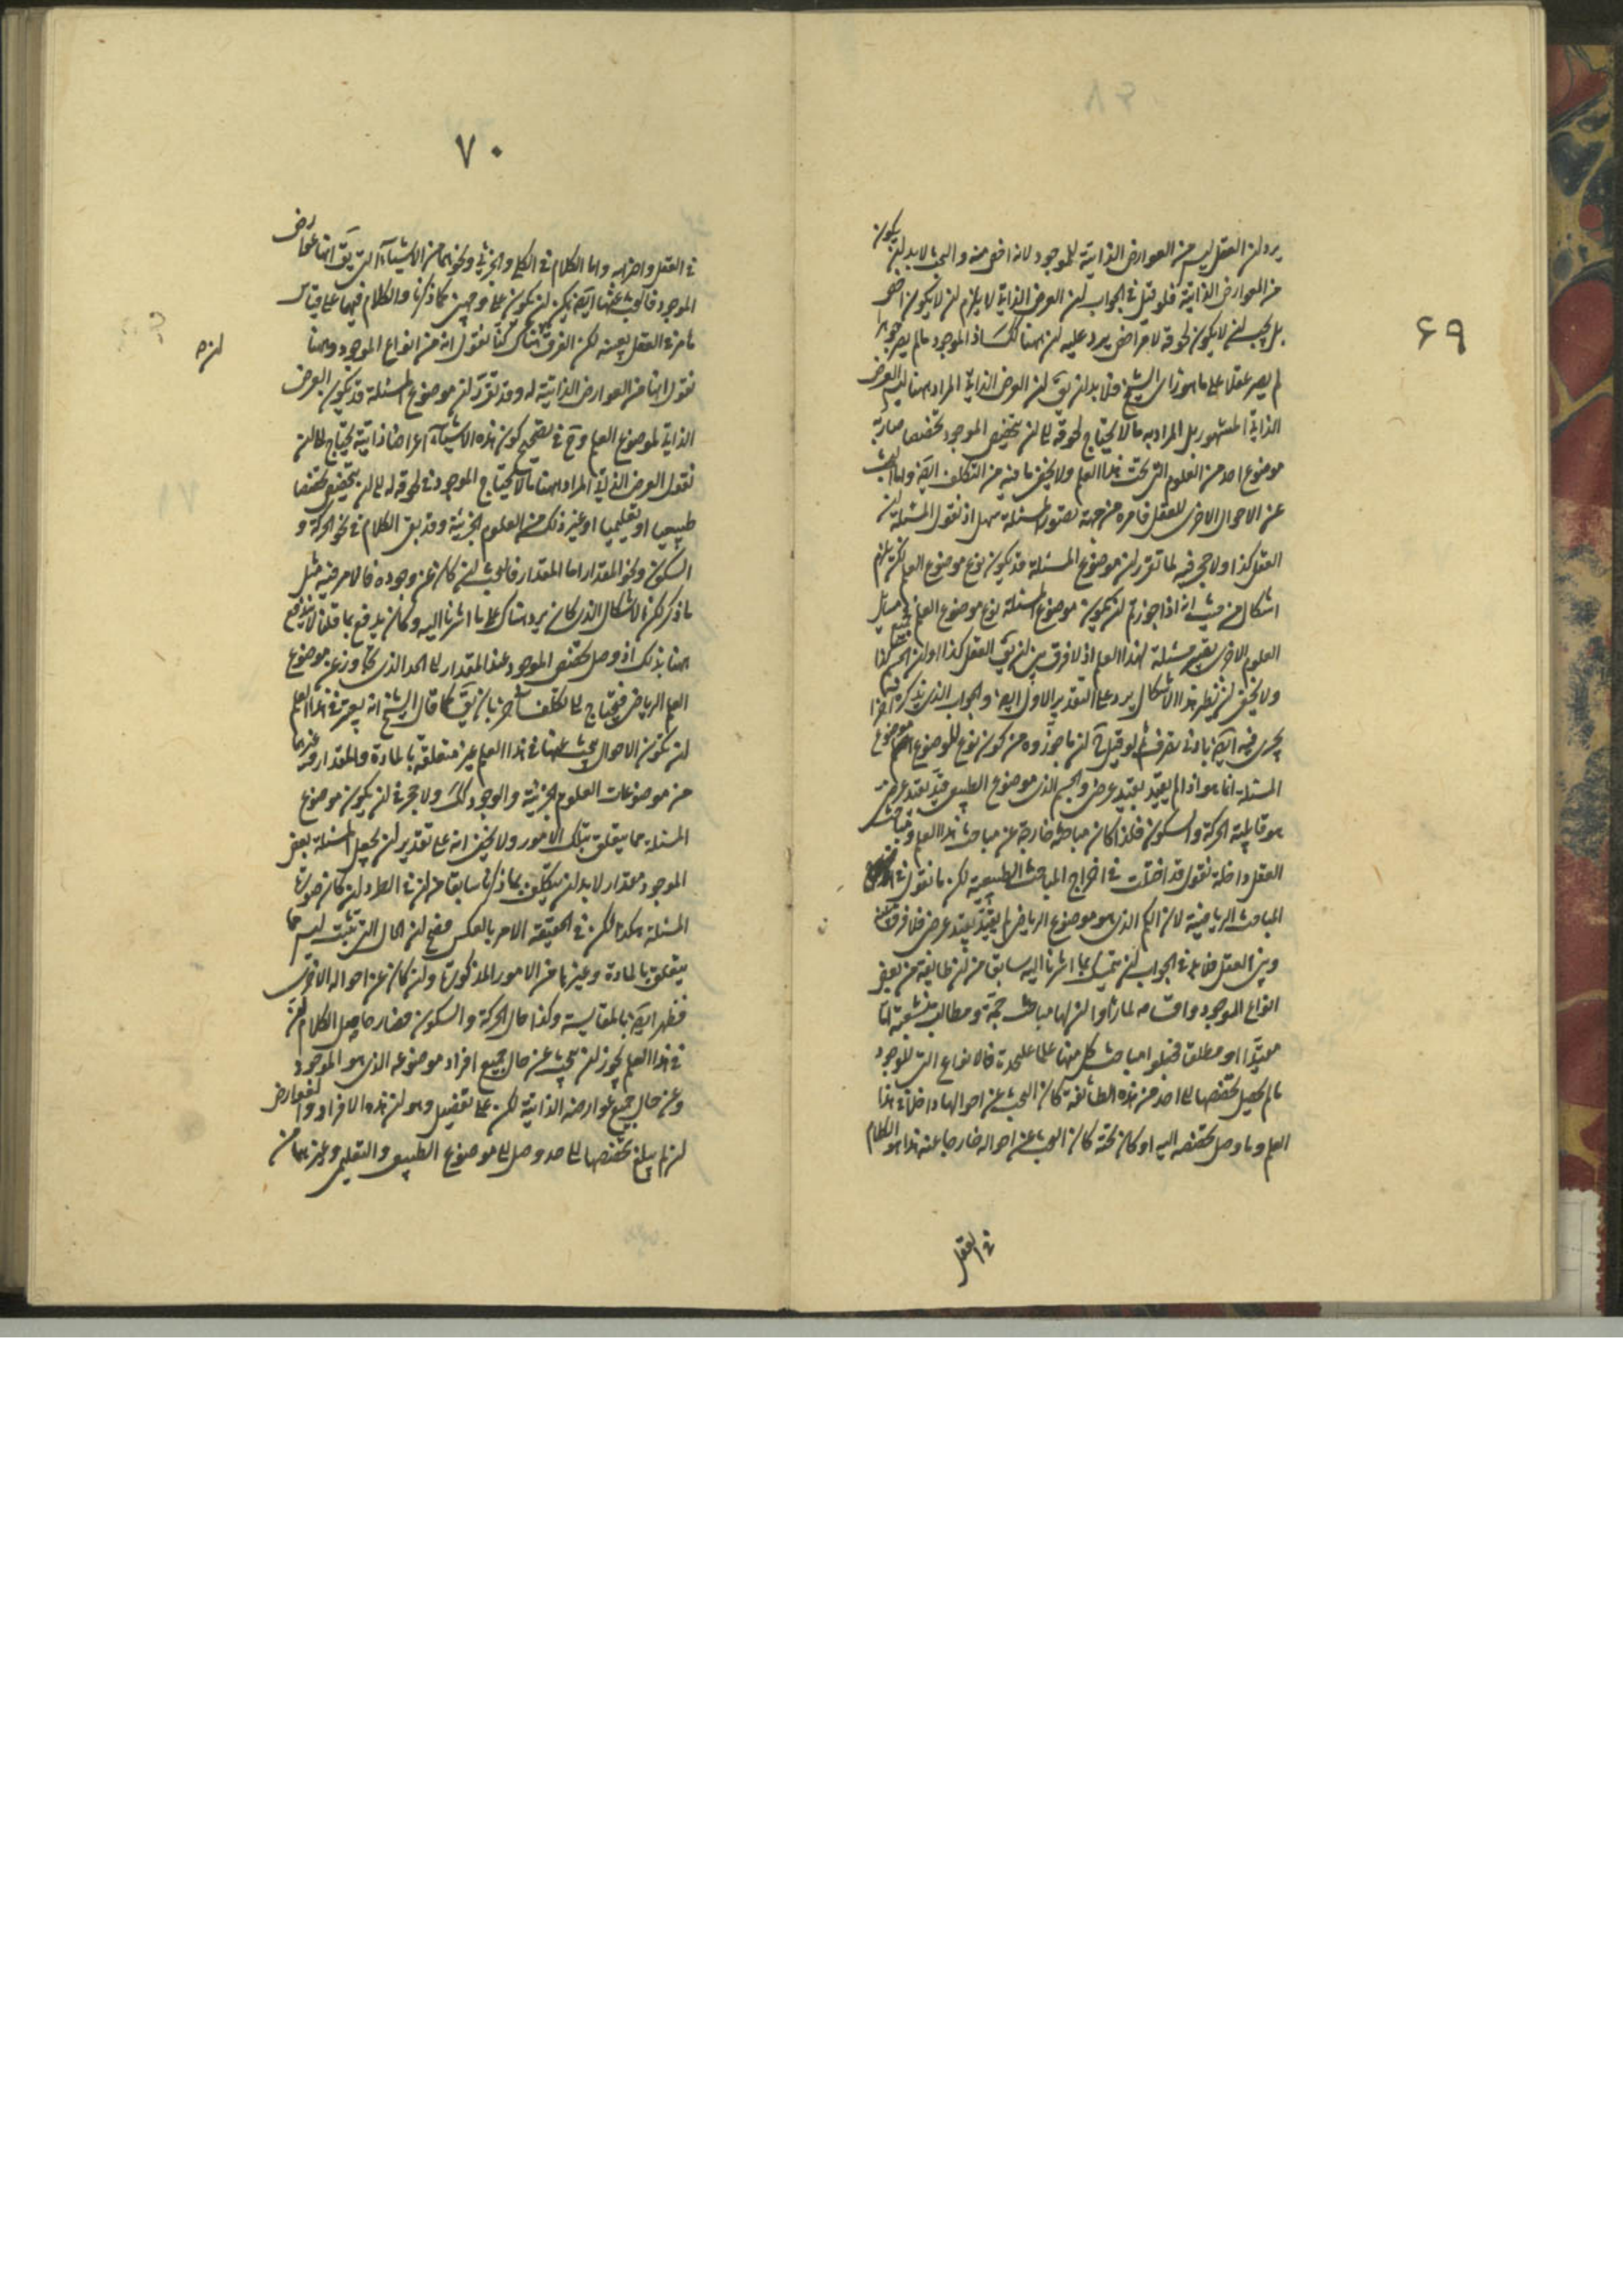 ۶۹
يرد ان العقل ليس من العوارض الذاتية للموجود لانه اخص منه والبحث لابد ان يكون
من العوارض الذاتية فلو قيل فى الجواب ان العرض الذاتى لا يلزم ان لا يكون اخص
بل يجب ان لا يكون لحوقه لامر اخص يرد عليه ان ههنا كك اذ الموجود ما لم يصر جوهرا
لم يصر عقلا على ما هو رأى الشيخ فلابد ان يق ان العرض الذاتى المراد ههنا ليس العرض
الذاتى المشهور بل المراد به ما لا يحتاج لحوقه الى ان يتخصص الموجود تخصصا صار به
موضوع احد من العلوم التى تحت هذا العلم ولا يخفى ما فيه من التكلف ايضا واما البحث
عن الاحوال الاخرى للعقل فامره من جهة تصوير المسئلة سهل اذ نقول المسئلة ان
العقل كذا ولا حجر فيه لما تقرر ان موضوع المسئلة قد يكون نوع موضوع العلم لكن يلزم
اشكال من حيث انه اذا جوزتم ان يكون موضوع المسئلة نوع موضوع العلم فجميع مسايل
العلوم الاخرى يصح مسئلة لهذا العلم اذ لا فرق بين ان يق العقل كذا او ان الجسم كذا
ولا يخفى ان نظير هذا الاشكال يرد على التقدير الاول ايضا والجواب الذى نذكره اخرا
يجرى فيه ايضا بادنى تصرف ثم لو قيل ان ما جوزوه من كون نوع الموضوع موضوع
المسئلة انما هو اذا لم يقيد بقيد عرضى والجسم الذى موضوع الطبيعى قيد بقيد عرضى
هو قابلية الحركة والسكون فلذا كان مباحثه خارجة عن مباحث هذا العلم ومباحث
العقل داخلة نقول قد اختلت فى اخراج المباحث الطبيعية لكن ما نقول فى
المباحث الرياضية لان الكم الذى هو موضوع الرياضى لم يقيد بقيد عرضى فلا فرق بينه
وبين العقل فلابد فى الجواب ان يتمسك بما اشرنا اليه سابقا من ان طايفة من بعض
انواع الموجود واقسامه لما رأوا ان لها مباحث جمة ومطالب متشعبة اما
مقيدا او مطلقا فجعلوا مباحث كل منها علما على حدة فالانواع التى للموجود
ما لم يصل تخصصها الى احد من هذه الطائفة كان البحث عن احوالها داخلا فى هذا
العلم وما وصل تخصصه اليه او كان تحته كان البحث عن احواله خارجا عنه هذا هو الكلام
فى العقل
۷۰
فى العقل واضرابه واما الكلام فى الكلى والجزئى ونحوهما من الاشياء التى يق انها عوارض
الموجود فالبحث عنها ايضا يمكن ان يكون على وجهين كما ذكرنا والكلام فيها على قياس
ما مر فى العقل بعينه لكن الفرق ان هناك كنا نقول انه من انواع الموجود وههنا
نقول انها من العوارض الذاتية له وقد تقرر ان موضوع المسئلة قد يكون العرض
الذاتى لموضوع العلم وح فى تصحيح كون هذه الاشياء اعراضا ذاتية يحتاج الى ان
نقول العرض الذاتى المراد ههنا ما لا يحتاج الموجود فى لحوقه له الى ان يتخصص تخصصا
طبيعيا او تعليميا او غير ذلك من العلوم الجزئية وقد بقى الكلام فى نحو الحركة و
السكون ونحو المقدار اما المقدار فالبحث ان كان عن وجوده فالامر فيه مثل
ما ذكر لكن الاشكال الذى كان يرد هناك على ما اشرنا اليه وكان يندفع بما قلنا لا يندفع
ههنا بذلك اذ وصل تخصص الموجود عند المقدار الى الحد الذى تجاوز عن موضوع
العلم الرياضى فيحتاج الى تكلف اخر بان يق كما قال الشيخ انه يعتبر فى هذا العلم
ان يكون الاحوال يبحث عنها فى هذا العلم غير متعلقة بالمادة والمقدار وغيرهما
من موضوعات العلوم الجزئية والوجود كك ولا حجر فى ان يكون موضوع
المسئلة مما يتعلق بتلك الامور ولا يخفى انه على تقدير ان يجعل المسئلة بعض
الموجود مقدار لابد ان يتكلف بما ذكرنا سابقا من ان فى الطرد ان كان صورة
المسئلة هكذا لكن فى الحقيقة الامر بالعكس فصح ان الحال التى تثبت ليس مما
يتعلق بالمادة وغيرها من الامور المذكورة وان كان عن احواله الاخرى
فظهر ايضا بالمقايسة وكذا حال الحركة والسكون فصار حاصل الكلام ان
فى هذا العلم يجوز ان يبحث عن حال جميع افراد موضوعه الذى هو الموجود
وعن حال جميع عوارضه الذاتية لكن على تفصيل وهو ان هذه الافراد والعوارض
ان لم يبلغ تخصصها الى حد وصل الى موضوع الطبيعى والتعليمى وغيرهما من